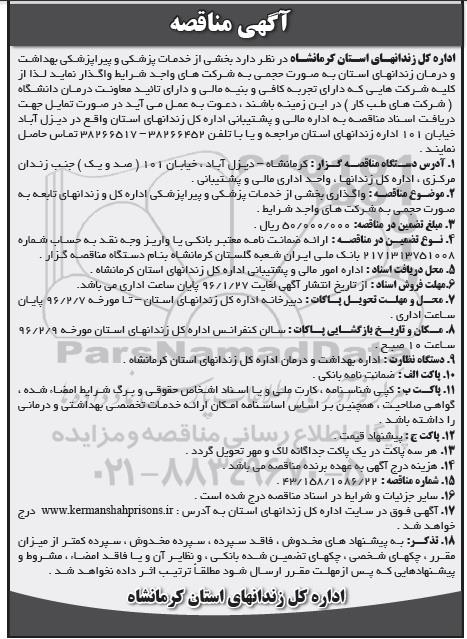 آگهی مناقصه
اداره کل زندانهای استان کرمانشاه در نظر دارد بخشی از خدمات پزشکی و پیراپزشکی بهداشت
و درمان زندانهای استان به صورت حجمی به شرکت های واجد شرایط واگذار نماید لذا از
کلیه شرکت هایی که دارای تجربه کافی و بنیه مالی و دارای تائید معاونت درمان دانشگاه
( شرکت های طب کار ) در این زمینه باشند ، دعوت به عمل می آید در صورت تمایل جهت
دریافت اسناد مناقصه به اداره مالی و پشتیبانی اداره کل زندانهای استان واقع در دیزل آباد
خیابان ۱۰۱ اداره زندانهای استان مراجعه و یا با تلفن ۳۸۲۶۶۴۵۲ – ۳۸۲۶۶۵۱۷ تماس حاصل
نمایند .
۱. آدرس دستگاه مناقصه گزار : کرمانشاه – دیزل آباد ، خیابان ۱۰۱ ( صد و یک ) جنب زندان
مرکزی ، اداره کل زندانها ، واحد اداری مالی و پشتیبانی .
۲. موضوع مناقصه : واگذاری بخشی از خدمات پزشکی و پیراپزشکی اداره کل و زندانهای تابعه به
صورت حجمی به شرکت های واجد شرایط .
۳. مبلغ تضمین در مناقصه: ۵۰/۰۰۰/۰۰۰ ریال .
۴. نوع تضمین در مناقصه : ارائه ضمانت نامه معتبر بانکی یا واریز وجه نقد به حساب شماره
۲۱۷۱۳۱۳۷۵۱۰۰۸ بانک ملی ایران شعبه گلستان کرمانشاه بنام دستگاه مناقصه گزار .
۵. محل دریافت اسناد : اداره امور مالی و پشتیبانی اداره کل زندانهای استان کرمانشاه .
۶.مهلت فروش اسناد : از تاریخ انتشار آگهی لغایت ۹۶/۱/۲۷ پایان ساعت اداری می باشد.
۷. محل و مهلت تحویل پاکات : دبیرخانه اداره کل زندانهای استان – تا مورخه ۹۶/۲/۷ پایان
ساعت اداری .
۸. مکان و تاریخ بازگشایی پاکات : سالن کنفرانس اداره کل زندانهای استان مورخه ۹۶/۲/۹
ساعت ۱۰ صبح .
۹. دستگاه نظارت : اداره بهداشت و درمان اداره کل زندانهای استان کرمانشاه .
۱۰. پاکت الف : ضمانت نامه بانکی .
۱۱. پاکت ب : کپی شناسنامه ، کارت ملی و یا اسناد اشخاص حقوقی و برگ شرایط امضاء شده ،
گواهی صلاحیت ، همچنین بر اساس اساسنامه امکان ارائه خدمات تخصصی بهداشتی و درمانی
را داشته باشد .
۱۲. پاکت ج : پیشنهاد قیمت .
۱۳. هر سه پاکت در یک پاکت جداگانه لاک و مهر تحویل گردد .
۱۴. هزینه درج آگهی به عهده برنده مناقصه می باشد .
۱۵. شماره مناقصه : ۴۳/۱۵۸/۱۰۸۶/۲۲ .
۱۶. سایر جزئیات و شرایط در اسناد مناقصه درج شده است .
۱۷. آگهی فوق در سایت اداره کل زندانهای استان به آدرس : www.kermanshahprisons.ir درج
خواهد شد .
۱۸. تذکر : به پیشنهاد های مخدوش ، فاقد سپرده ، سپرده مخدوش ، سپرده کمتر از میزان
مقرر ، چکهای شخصی ، چکهای تضمین شده بانکی ، و نظایر آن و یا فاقد امضاء ، مشروط و
پیشنهادهایی که پس ازمهلت مقرر ارسال شود مطلقا ترتیب اثر داده نخواهد شد .
اداره کل زندانهای استان کرمانشاه
ParsNamadData
پایگاه اطلاع رسانی مناقصه و مزایده
۰۲۱-۸۸۳۴۹۶۷۰-۵